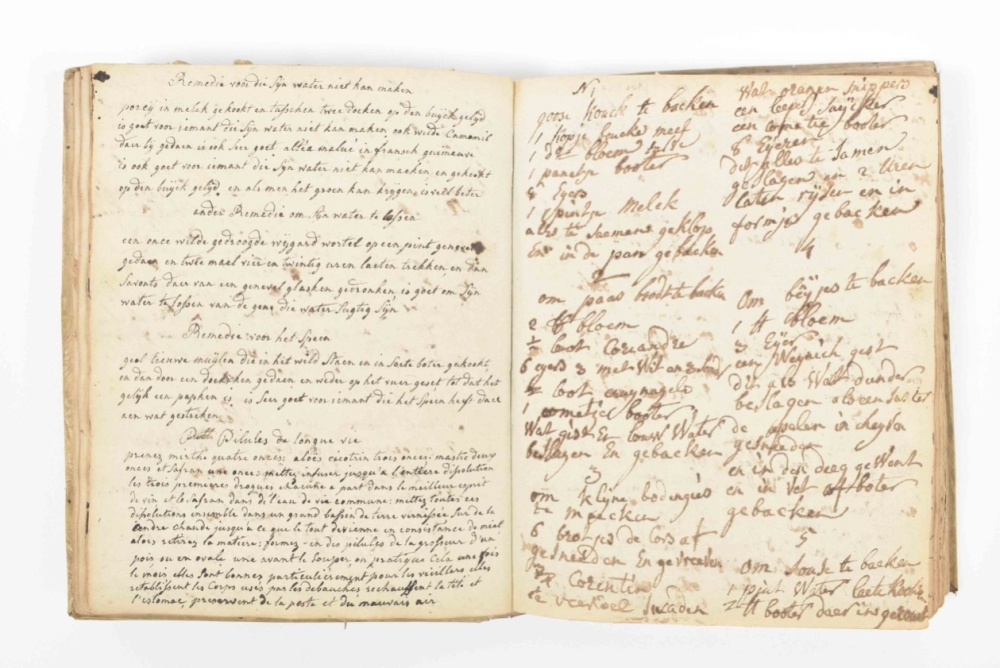 Remedie voor die sijn water niet kan maken
poreij in melck gekookt en tusschen twee doeken op den buijck geleijd
is goet voor iemant die sijn water niet kan maken, ook wilde Camomil
daer bij gedaen is ook seer goet altea malue in fransch guimauve
is ook goet voor iemant die sijn water niet kan macken en gekookt
op den buijck geleijd, en als men het groen kan krijgen is veel beter
ander Remedie om sijn water te lossen
een once wilde gedroogde wijgard wortel op een pint genever
gedaen en twee mael vier en twintig uren laeten trekken en dan
savonts daer van een genever glasken gedronken, is goet om sijn
water te lossen van de gene die water sugtig sijn
Remedie voor het speen
geel leeuwe muijlen die in het wild staen en in saete boter gekookt
en dan door een doecksken gedaen en weder op het vuer geset tot dat het
gelijk een papken is, is seer goet voor iemant die het speen heeft daer
aen wat gestreken
Pilules de longue vie
prenez mirthe quatre onces: aloës cicotrin trois onces: mastic deux
onces et safran une once: mettez infuser jusqu'a l'entiere dissolution
les trois premieres drogues chacune a part dans le meilleur esprit
de vin et le safran dans de l'eau de vie commune: mettez toutes ces
dissolutions insemble dans un grand bassin de terre vernissée sur de la
cendre chaude jusqu'a ce que le tout devienne en consistance de miel
alors retirez la matiere: formez-en des pilules de la grosseur d'un
pois ou en ovale une avant le souper on pratique cela une fois
le mois elles sont bonnes particulierement pour les vieillars elles
retablissent les corps usés par les debauches rechauffent la tête et
l'estomac preservent de la peste et du mauvais air
N 1
goose koeck te backen
1 hoopje bucke meel
1 dto bloem
1 panetje booter
8 Eijers
1 pintje Melck
alles te saemen geklop
En in de pan gebacken
2
om paas broodt te backen
2 ℔ bloem
½ loot Coriandre
6 eijers 3 met wit en 3 sonder
½ loot cruijnagels
1 commetje booter
Wat gist En louw Water
beslagen En gebacken
3
om klijne bodingies
te maecken
6 brootjes de cors af
gesneeden En gevreeven
Corenten
te veerkoel
Wat oranjen snippers
een leepel suijcker
een commetje booter
8 Eijeren
dit alles te samen
geslagen en 2 Uren
laten rijsen en in
formjes gebacken
4
Om beijjes te backen
1 ℔ bloem
3 Eijers
een Weijnich gist
dit als Wat dunder
beslagen
de apelen in scheijven
gesneeden
en in den deeg geWent
en in vet off boter
gebacken
5
Om souse te backen
1 pint Water laete kooken
½ ℔ booter daer ins gedaen